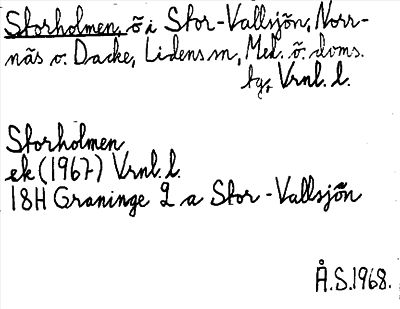 Storholmen, ö i Stor-Vallsjön, Norr-
näs o. Dacke, Lidens sn, Med. ö. doms.
tg, Vrnl. l.
Storholmen
ek (1967) Vrnl. l.
18H Graninge 2 a Stor-Vallsjön
Å.S. 1968.